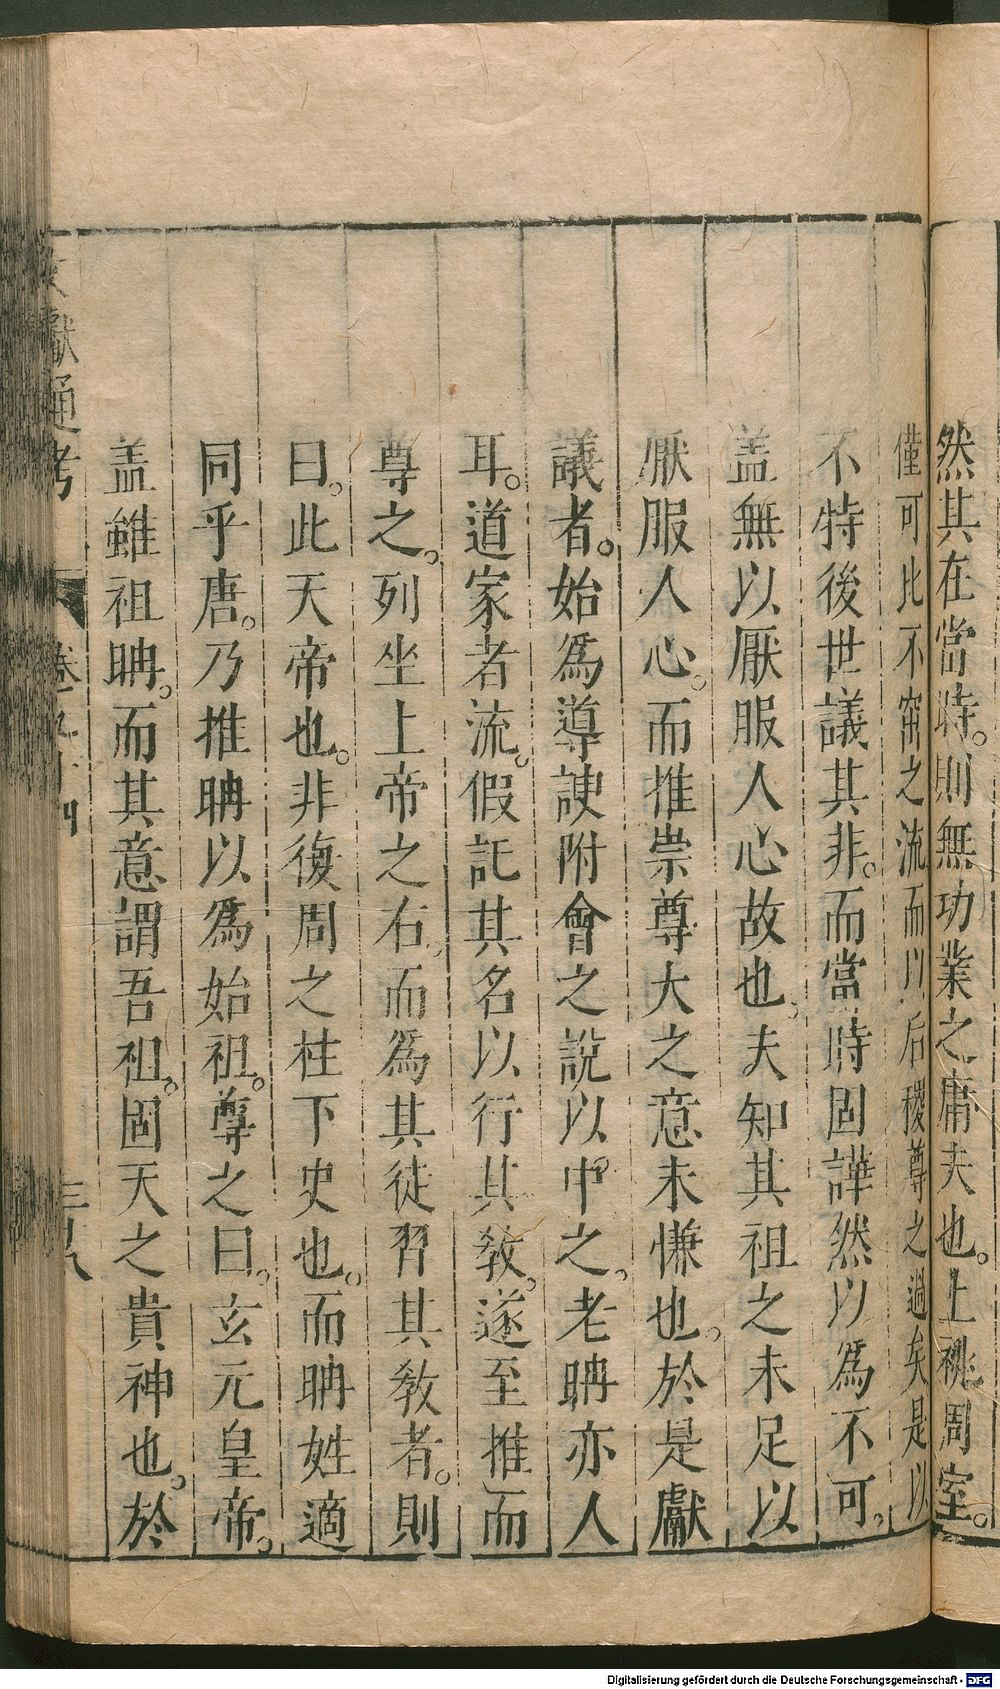 然其在當時。則無功業之庸夫也。上祧周室。
僅可比不窋之流而以后稷尊之過矣是以
不特後世議其非。而當時固譁然以爲不可。
盖無以厭服人心故也。夫知其祖之未足以
厭服人心。而推崇尊大之意未慊也。於是獻
議者。始爲導諛附會之說以中之。老聃亦人
耳。道家者流。假託其名以行其教。遂至推而
尊之。列坐上帝之右。而爲其徒習其教者。則
曰。此天帝也。非復周之柱下史也。而聃姓適
同乎唐。乃推聃以爲始祖。尊之曰。玄元皇帝。
盖雖祖聃。而其意謂吾祖。固天之貴神也。於
文獻通考
卷九十四
三百八
Digitalisierung gefördert durch die Deutsche Forschungsgemeinschaft - DFG